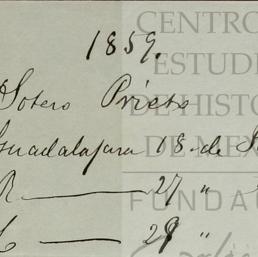 1859.
Sotero Prieto
Guadalajara 18 de
R — 27 "
C — 29 "
CENTRO
ESTUDI
DE HISTO
DE MÉX
FUNDA